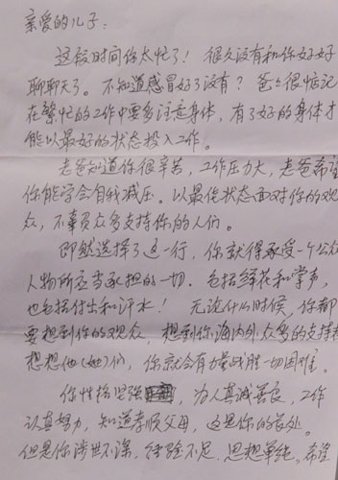 亲爱的儿子:
这段时间你太忙了！很久没有和你好好
聊聊天了。不知道感冒好了没有？爸爸很惦记
在繁忙的工作中要多注意身体，有了好的身体才
能以最好的状态投入工作。
老爸知道你很辛苦，工作压力大，老爸希望
你能学会自我减压。以最佳状态面对你的观
众，不辜负众多支持你的人们。
即然选择了这一行，你就得承受一个公众
人物所应当承担的一切。包括鲜花和掌声，
也包括付出和汗水！无论什么时候，你都
要想到你的观众，想到你海内外众多的支持
想想他(她)们，你就会有力量战胜一切困难。
你性格坚强，为人真诚善良，工作
认真努力，知道孝顺父母，这是你的长处。
但是你涉世不深，经验不足，思想单纯。希望